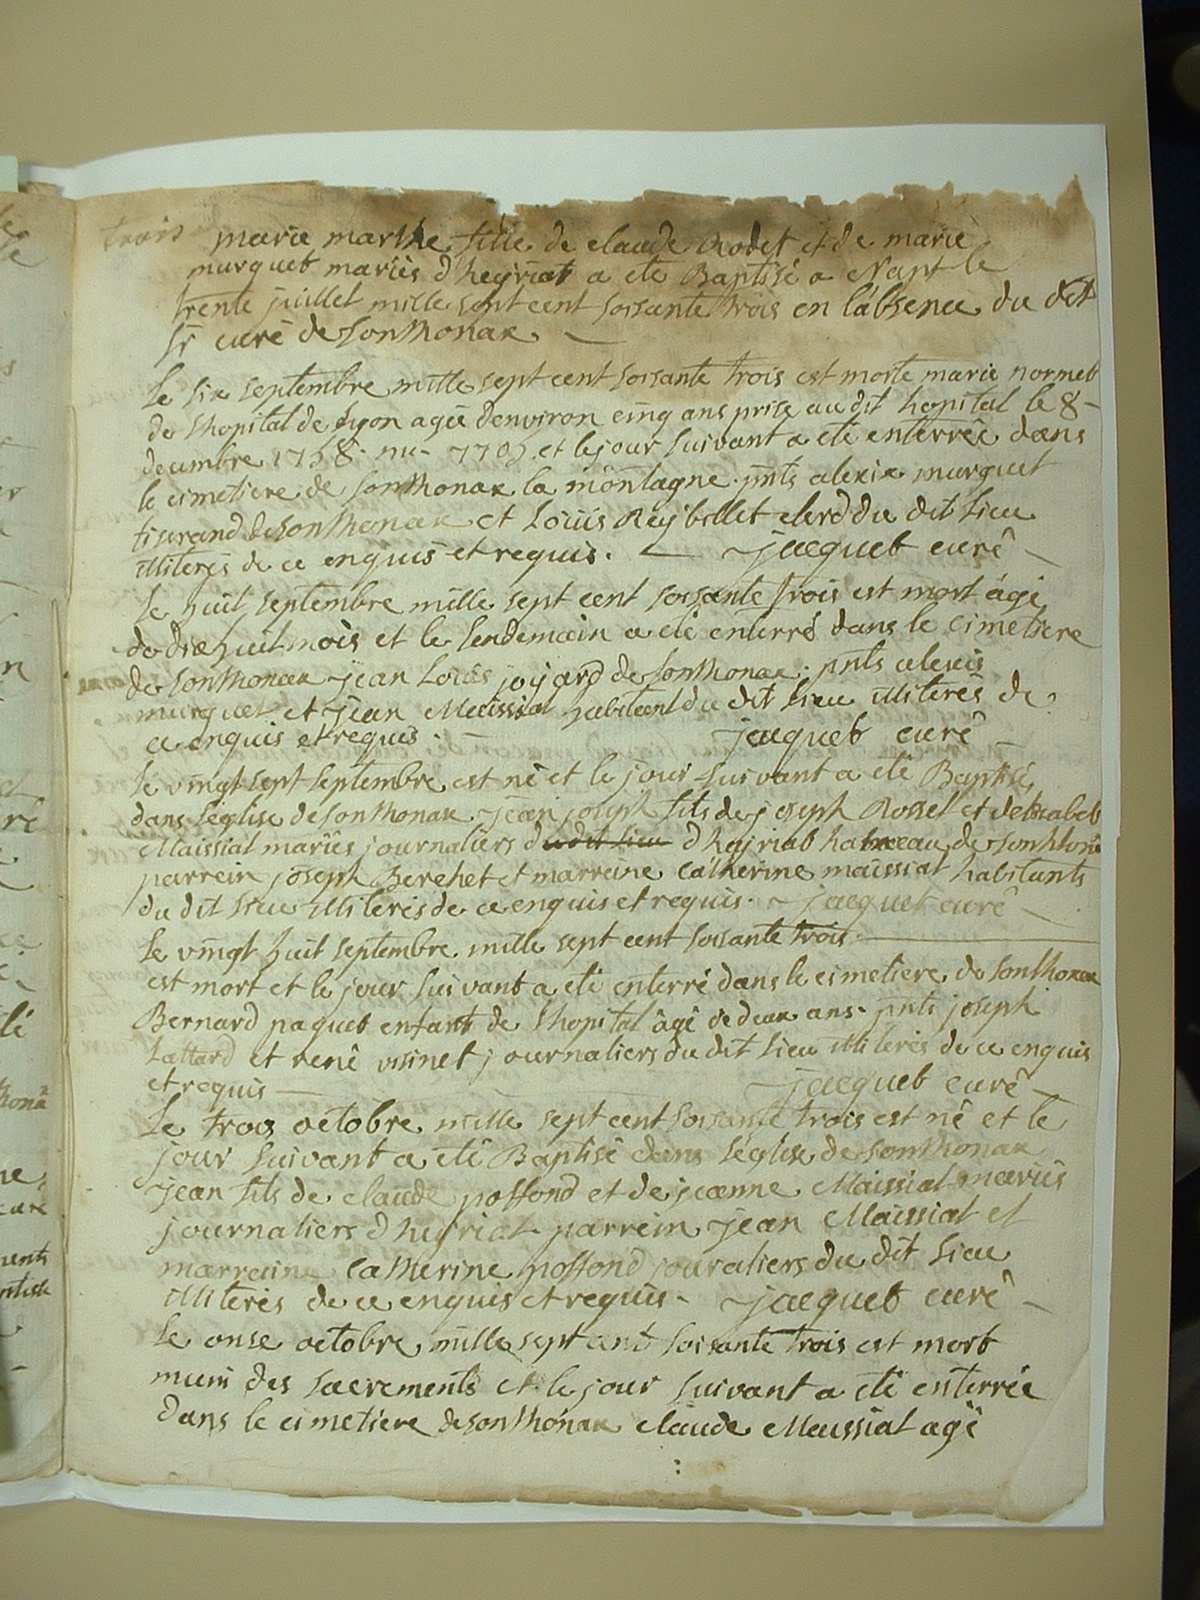 trois
marie marthe fille de claude Rodet et de marie
murquet mariés d'heyriat a eté Baptisé a Napt le
trente juillet mille sept cent soisante trois en l'absence du dit
Sr curé de Sonthonax
Le six septembre mille sept cent soisante trois est morte marie normet
de l'hopital de Lyon agée denviron cinq ans prise au dit hopital le 8
decembre 1758 et le jour suivant a eté enterrée dans
le cimetiere de Sonthonax la montagne pnts alexix murquet
tiserand de Sonthonax et Louis Reybillet clerc du dit Lieu
illiterés de ce enquis et requis. jacquet curé
Le huit septembre mille sept cent soisante trois est mort âgé
de dix huit mois et le lendemain a eté enterré dans le cimetiere
de Sonthonax jean Louis joyard de Sonthonax. pnts alexis
murquet et jean Maissiat habitant du dit Lieu illiterés de
ce enquis et requis. jacquet curé
Le vingt sept septembre est né et le jour suivant a eté Baptisé
dans l'église de Sonthonax jean joseph fils de joseph Rossel et de
Maissiat mariés journaliers du dit Lieu d'heyriat hameau de Sonthonax
parrein joseph Berchet et marreine Catherine maissiat habitants
du dit Lieu illiterés de ce enquis et requis. jacquet curé
Le vingt huit septembre mille sept cent soisante trois
est mort et le jour suivant a eté enterré dans le cimetiere de Sonthonax
Bernard paquet enfant de l'hopital âgé de deux ans. pnts joseph
et rené visinet journaliers du dit Lieu illiterés de ce enquis
et requis jacquet curé
Le trois octobre mille sept cent soisante trois est né et le
jour suivant a eté Baptisé dans l'église de Sonthonax
jean fils de claude poffond et de jeanne Maissiat mariés
journaliers d'heyriat parrein jean Maissiat et
marreine Catherine poffond jouraliers du dit Lieu
illiterés de ce enquis et requis. jacquet curé
Le onse octobre mille sept cent soisante trois est mort
muni des sacrements et le jour suivant a eté enterrée
dans le cimetiere de Sonthonax claude Maissiat agé